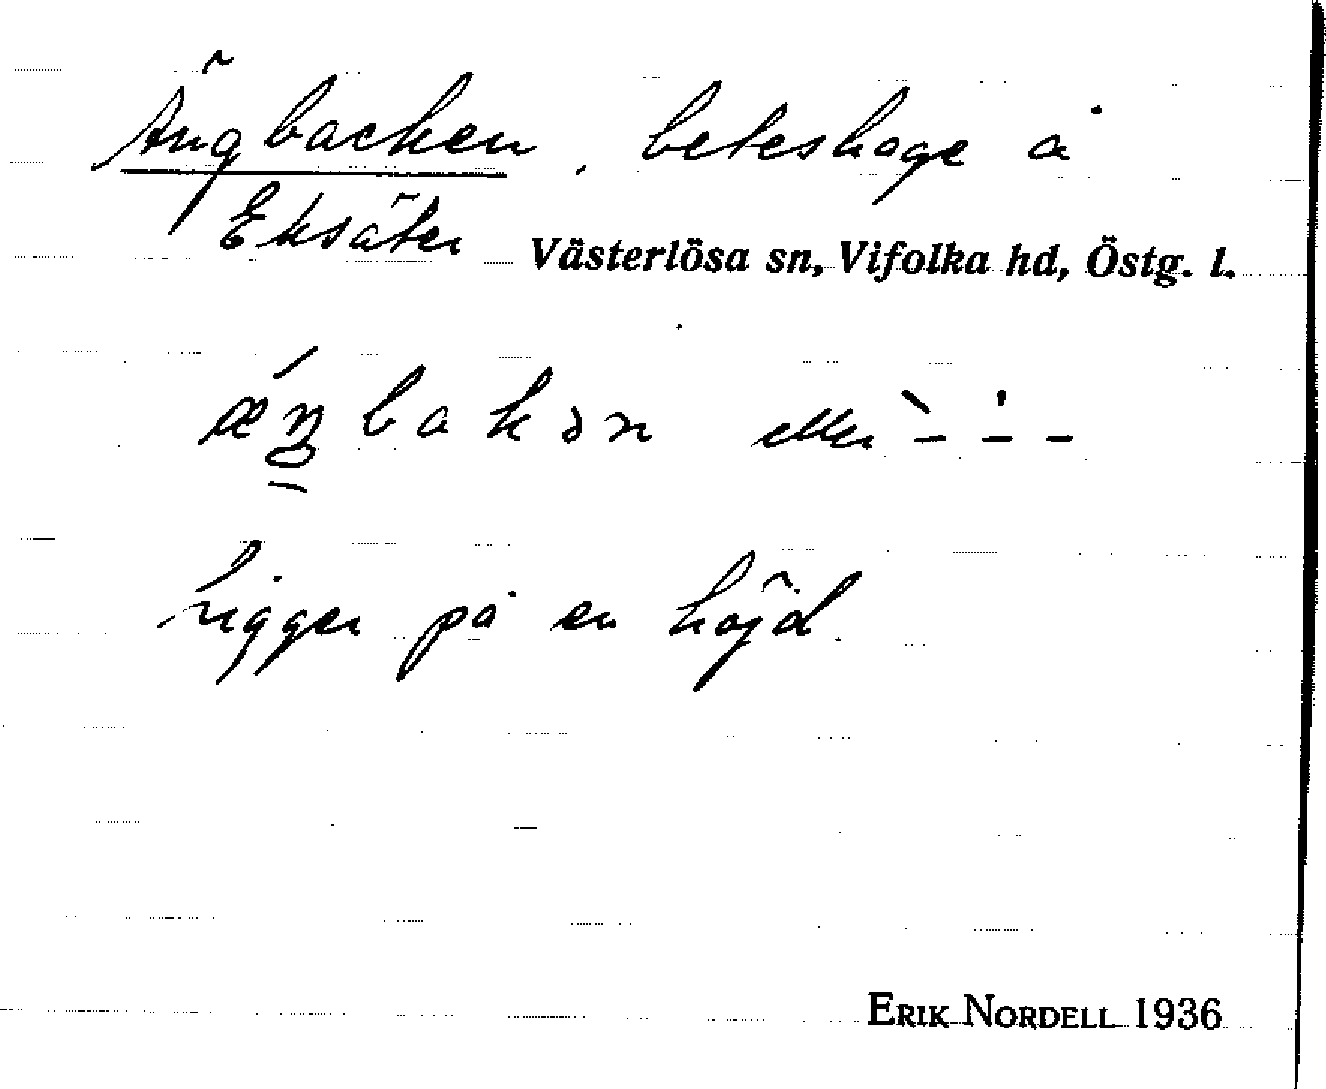 Ängbacken, beteshage å
Eksäter Västerlösa sn, Vifolka hd, Östg. l.
ǽŋbakən eller `– –́ –
Ligger på en höjd.
ERIK NORDELL 1936